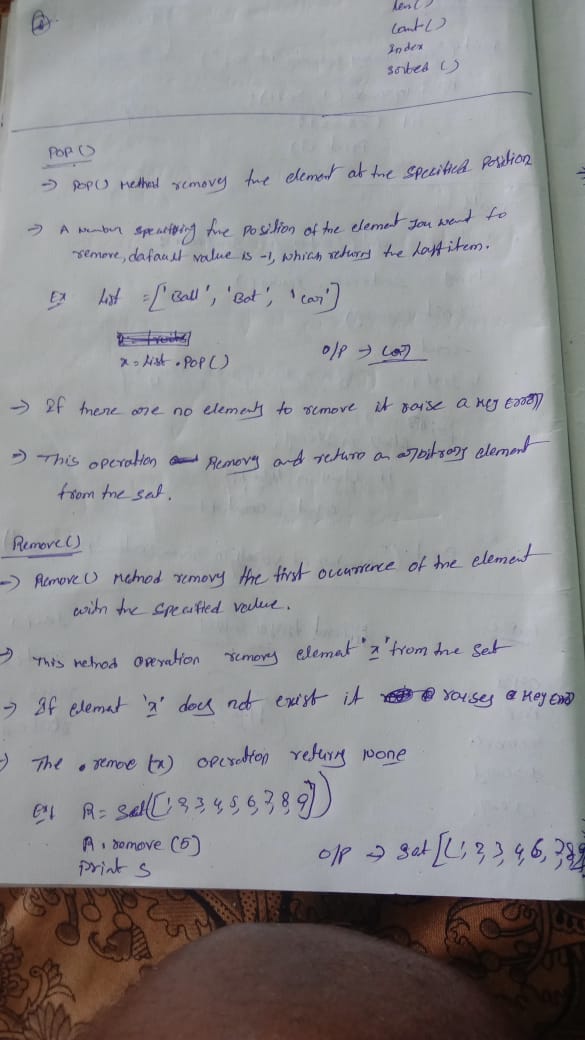 len()
Count()
Index
Sorted ()
POP()
→ POP() Method removes the element at the specified Position
→ A Number specifying the Position of the element you want to
remove, dafault value is -1, which returns the last item.
Ex List = ['Ball', 'Bat', 'car']
x = List . POP() O/P → car
→ If there are no elements to remove it raise a key Error
→ This operation Removes and return an arbitrary element
from the set.
Remove()
→ Remove() Method removes the first occurrence of the element
with the specified value.
→ This method operation removes elemat 'x' from the set
→ If elemat 'x' does not exist it raises a Key Error
→ The . remove (x) operation returns None
Ex1 R = Set([1,2,3,4,5,6,7,8,9])
R . remove (5)
print S O/P → Set [(1,2,3,4,6,7,8,9